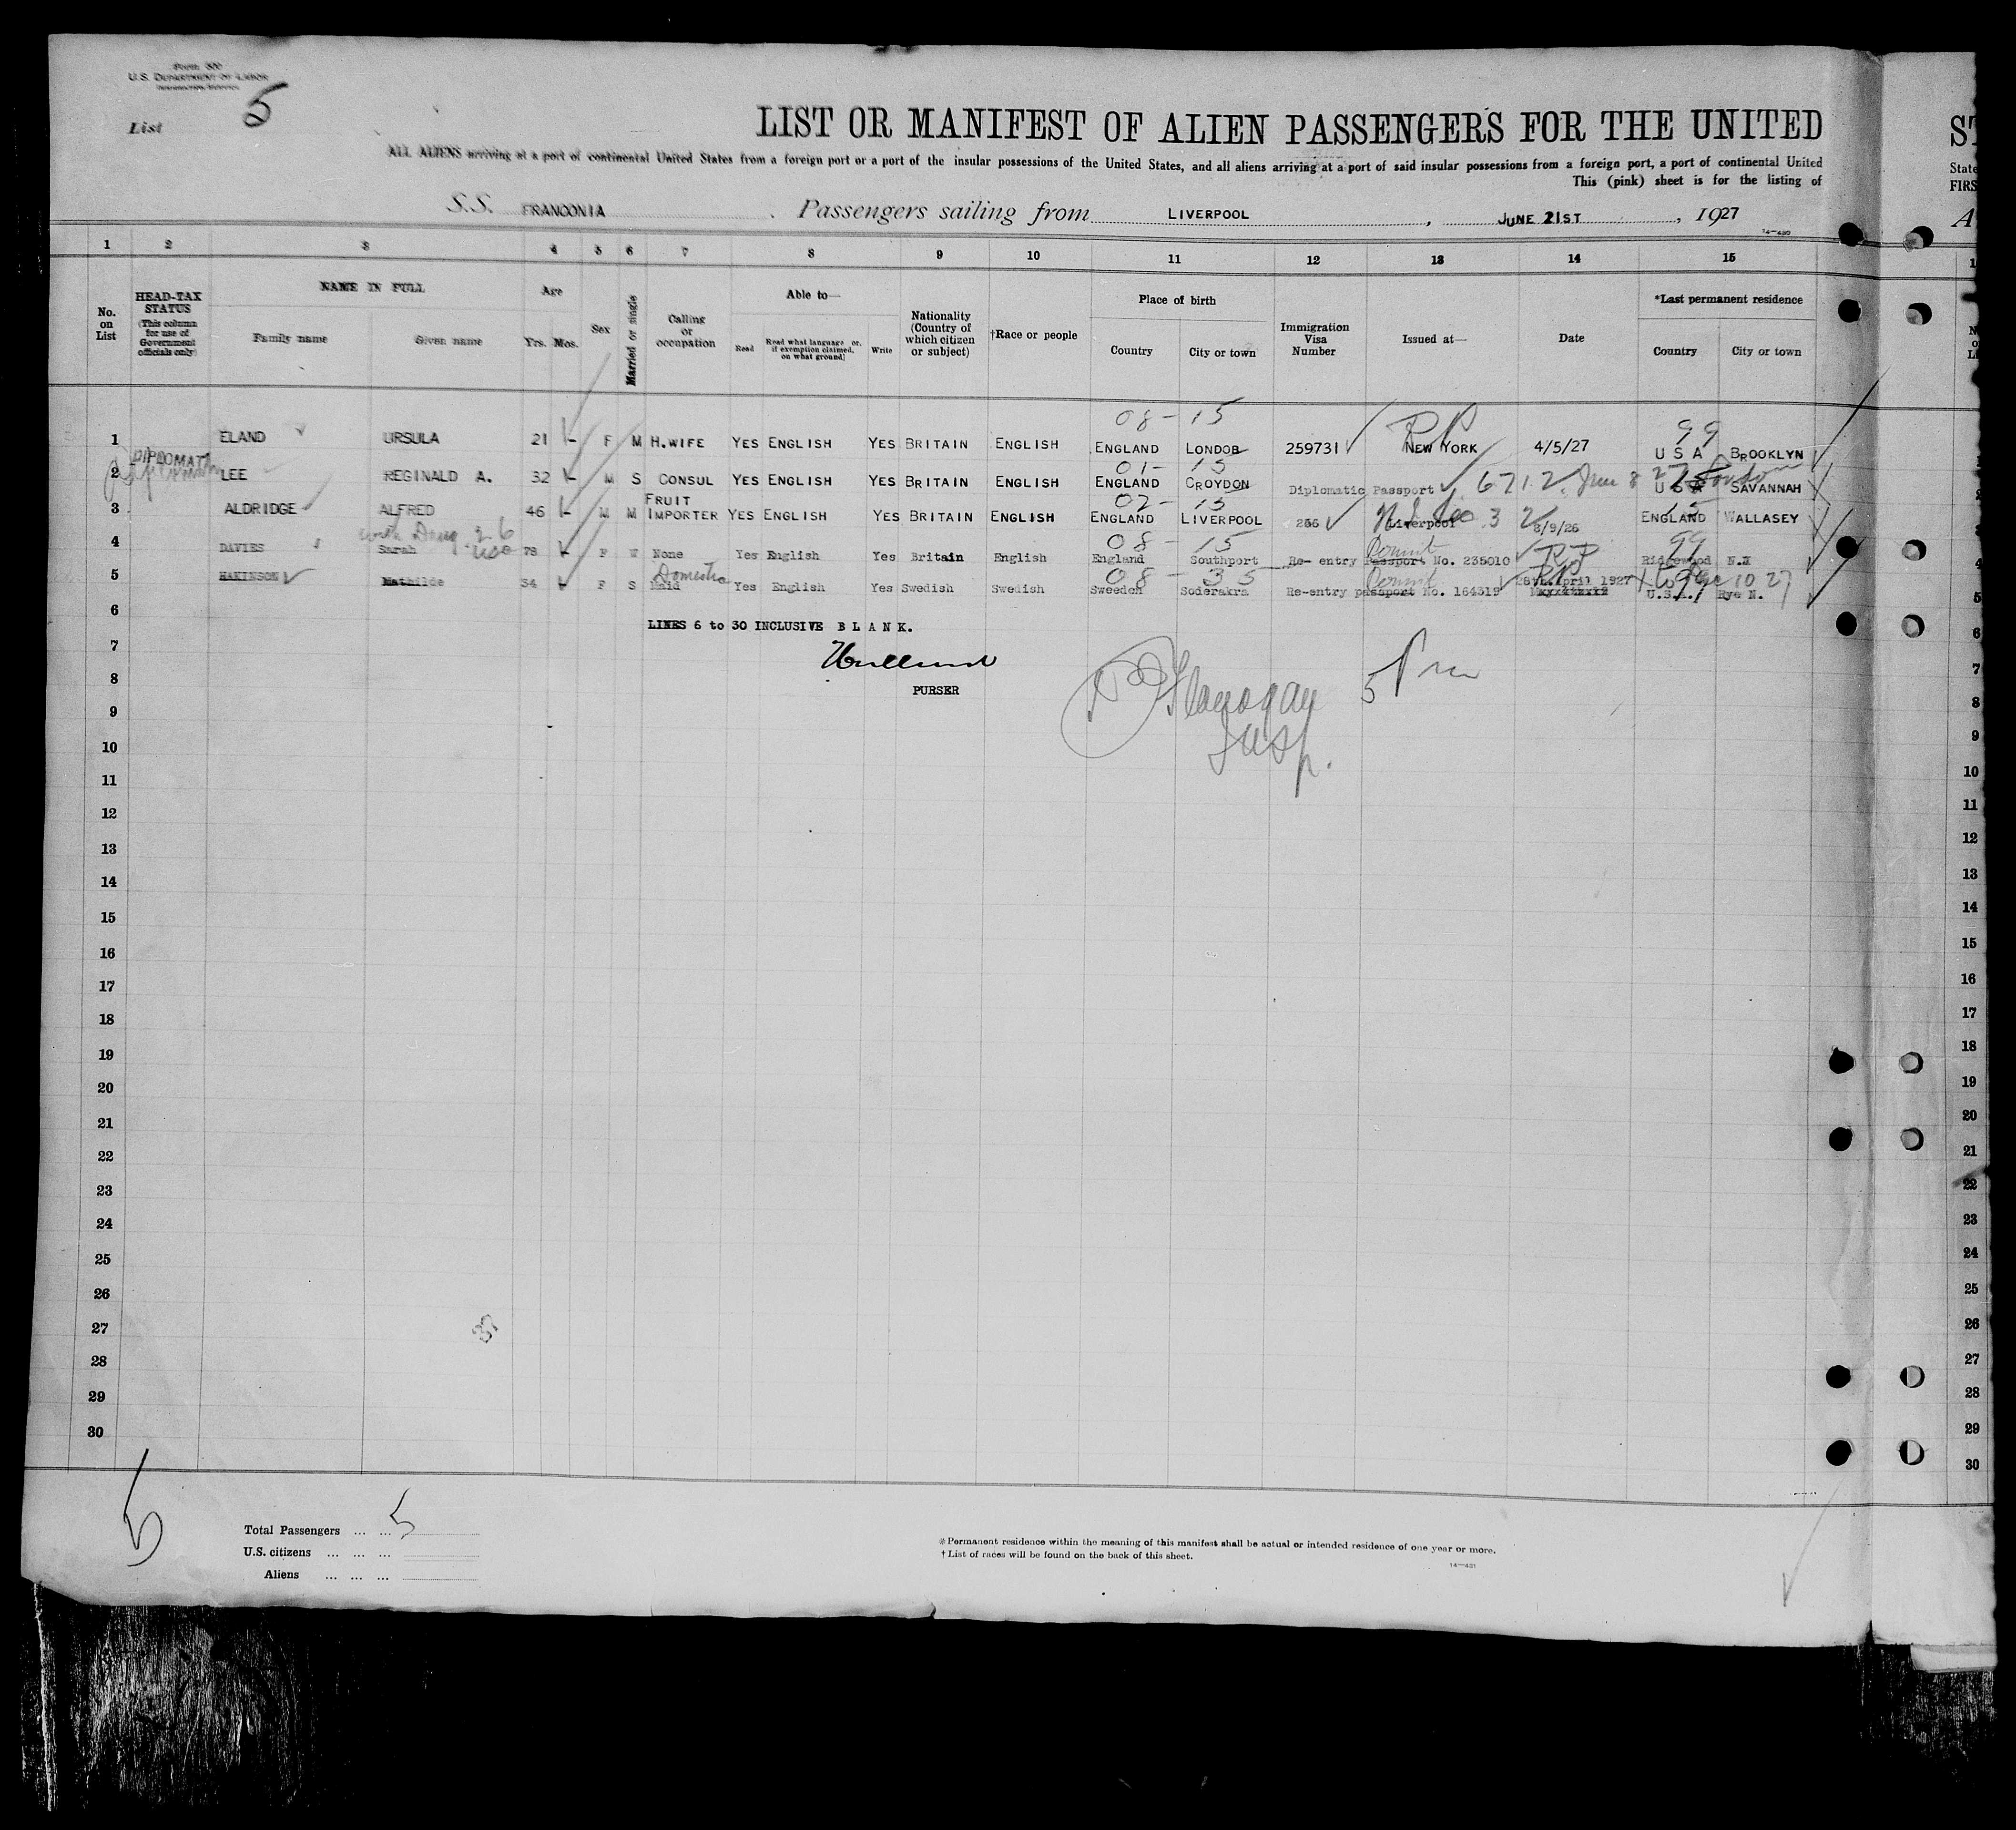 Form 500
U.S. DEPARTMENT OF LABOR
IMMIGRATION SERVICE
List 5
LIST OR MANIFEST OF ALIEN PASSENGERS FOR THE UNITED
ALL ALIENS arriving at a port of continental United States from a foreign port or a port of the insular possessions of the United States, and all aliens arriving at a port of said insular possessions from a foreign port, a port of continental United
This (pink) sheet is for the listing of
S.S. FRANCONIA Passengers sailing from LIVERPOOL, JUNE 21ST, 1927
1 2 3 4 5 6 7 8 9 10 11 12 13 14 15
No. on List
HEAD-TAX STATUS (This column for use of Government officials only)
NAME IN FULL Family name Given name
Age Yrs. Mos.
Sex
Married or single
Calling or occupation
Able to— Read Read what language or, if exemption claimed, on what ground Write
Nationality (Country of which citizen or subject)
†Race or people
Place of birth Country City or town
Immigration Visa Number
Issued at—
Date
*Last permanent residence Country City or town
08-15 PP 99
1 ELAND URSULA 21 - F M H.WIFE YES ENGLISH YES BRITAIN ENGLISH ENGLAND LONDON 259731 NEW YORK 4/5/27 U S A BROOKLYN
DIPLOMAT 01-15
2 LEE REGINALD A. 32 - M S CONSUL YES ENGLISH YES BRITAIN ENGLISH ENGLAND CROYDON Diplomatic Passport 6712 June 8 27 London U S A SAVANNAH
02-15
3 ALDRIDGE ALFRED 46 - M M FRUIT IMPORTER YES ENGLISH YES BRITAIN ENGLISH ENGLAND LIVERPOOL 266 Liverpool 8/9/26 ENGLAND WALLASEY
08-15 Permit PP 99
4 DAVIES Sarah 78 - F W None Yes English Yes Britain English England Southport Re- entry Passport No. 235010 Ridgewood N.
08-35 Permit 99
5 HAKINSON Mathilde 34 - F S Domestic Maid Yes English Yes Swedish Swedish Sweden Soderakra Re-entry passport No. 164319 28th April 1927 U.S.A. Rye N.
6 LINES 6 to 30 INCLUSIVE B L A N K.
7
8 PURSER
Flanagan
Insp.
9
10
11
12
13
14
15
16
17
18
19
20
21
22
23
24
25
26
27
28
29
30
5
Total Passengers ... ... 5
U.S. citizens ... ... ...
Aliens ... ... ...
*Permanent residence within the meaning of this manifest shall be actual or intended residence of one year or more.
†List of races will be found on the back of this sheet.
14—431